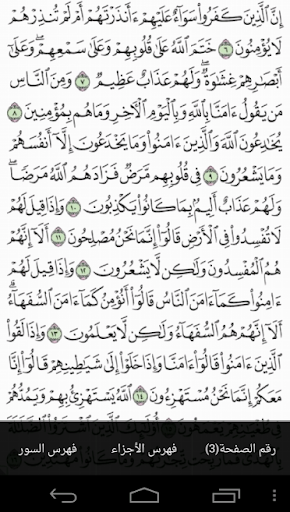 إِنَّ ٱلَّذِينَ كَفَرُوا۟ سَوَآءٌ عَلَيْهِمْ ءَأَنذَرْتَهُمْ أَمْ لَمْ تُنذِرْهُمْ
لَا يُؤْمِنُونَ ٦ خَتَمَ ٱللَّهُ عَلَىٰ قُلُوبِهِمْ وَعَلَىٰ سَمْعِهِمْ ۖ وَعَلَىٰٓ
أَبْصَٰرِهِمْ غِشَٰوَةٌ ۖ وَلَهُمْ عَذَابٌ عَظِيمٌ ٧ وَمِنَ ٱلنَّاسِ
مَن يَقُولُ ءَامَنَّا بِٱللَّهِ وَبِٱلْيَوْمِ ٱلْءَاخِرِ وَمَا هُم بِمُؤْمِنِينَ ٨
يُخَٰدِعُونَ ٱللَّهَ وَٱلَّذِينَ ءَامَنُوا۟ وَمَا يَخْدَعُونَ إِلَّآ أَنفُسَهُمْ
وَمَا يَشْعُرُونَ ٩ فِى قُلُوبِهِم مَّرَضٌ فَزَادَهُمُ ٱللَّهُ مَرَضًا ۖ
وَلَهُمْ عَذَابٌ أَلِيمٌۢ بِمَا كَانُوا۟ يَكْذِبُونَ ١٠ وَإِذَا قِيلَ لَهُمْ
لَا تُفْسِدُوا۟ فِى ٱلْأَرْضِ قَالُوٓا۟ إِنَّمَا نَحْنُ مُصْلِحُونَ ١١ أَلَآ إِنَّهُمْ
هُمُ ٱلْمُفْسِدُونَ وَلَٰكِن لَّا يَشْعُرُونَ ١٢ وَإِذَا قِيلَ لَهُمْ
ءَامِنُوا۟ كَمَآ ءَامَنَ ٱلنَّاسُ قَالُوٓا۟ أَنُؤْمِنُ كَمَآ ءَامَنَ ٱلسُّفَهَآءُ ۗ
أَلَآ إِنَّهُمْ هُمُ ٱلسُّفَهَآءُ وَلَٰكِن لَّا يَعْلَمُونَ ١٣ وَإِذَا لَقُوا۟
ٱلَّذِينَ ءَامَنُوا۟ قَالُوٓا۟ ءَامَنَّا وَإِذَا خَلَوْا۟ إِلَىٰ شَيَٰطِينِهِمْ قَالُوٓا۟ إِنَّا
مَعَكُمْ إِنَّمَا نَحْنُ مُسْتَهْزِءُونَ ١٤ ٱللَّهُ يَسْتَهْزِئُ بِهِمْ وَيَمُدُّهُمْ
فِى طُغْيَٰنِهِمْ يَعْمَهُونَ ١٥ أُو۟لَٰٓئِكَ ٱلَّذِينَ ٱشْتَرَوُا۟ ٱلضَّلَٰلَةَ
بِٱلْهُدَىٰ فَمَا رَبِحَت تِّجَٰرَتُهُمْ وَمَا كَانُوا۟ مُهْتَدِينَ
رقم الصفحة(3) فهرس الأجزاء فهرس السور